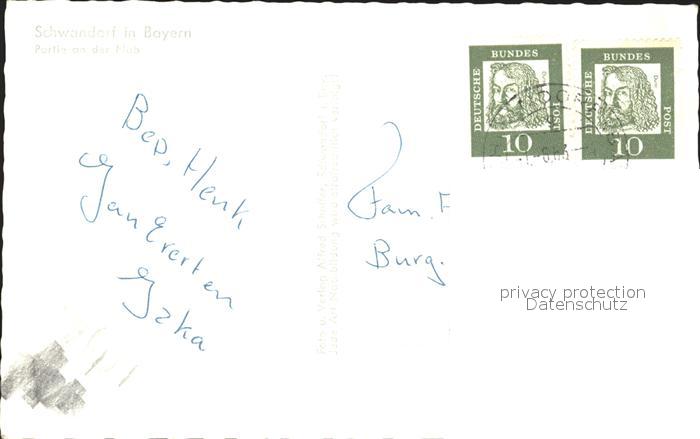 Schwandorf in Bayern
Partie an der Nab
Bep, Henk
Jan Evert en
Foto u. Verlag Alfred Schaller, Schwandorf
Fam. F
Burg.
DEUTSCHE BUNDES POST
10
DEUTSCHE BUNDES POST
10
privacy protection
Datenschutz